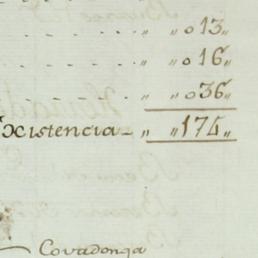 " " 013 "
" " 016 "
" " 036 "
Existencia " " 174 "
Covadonga